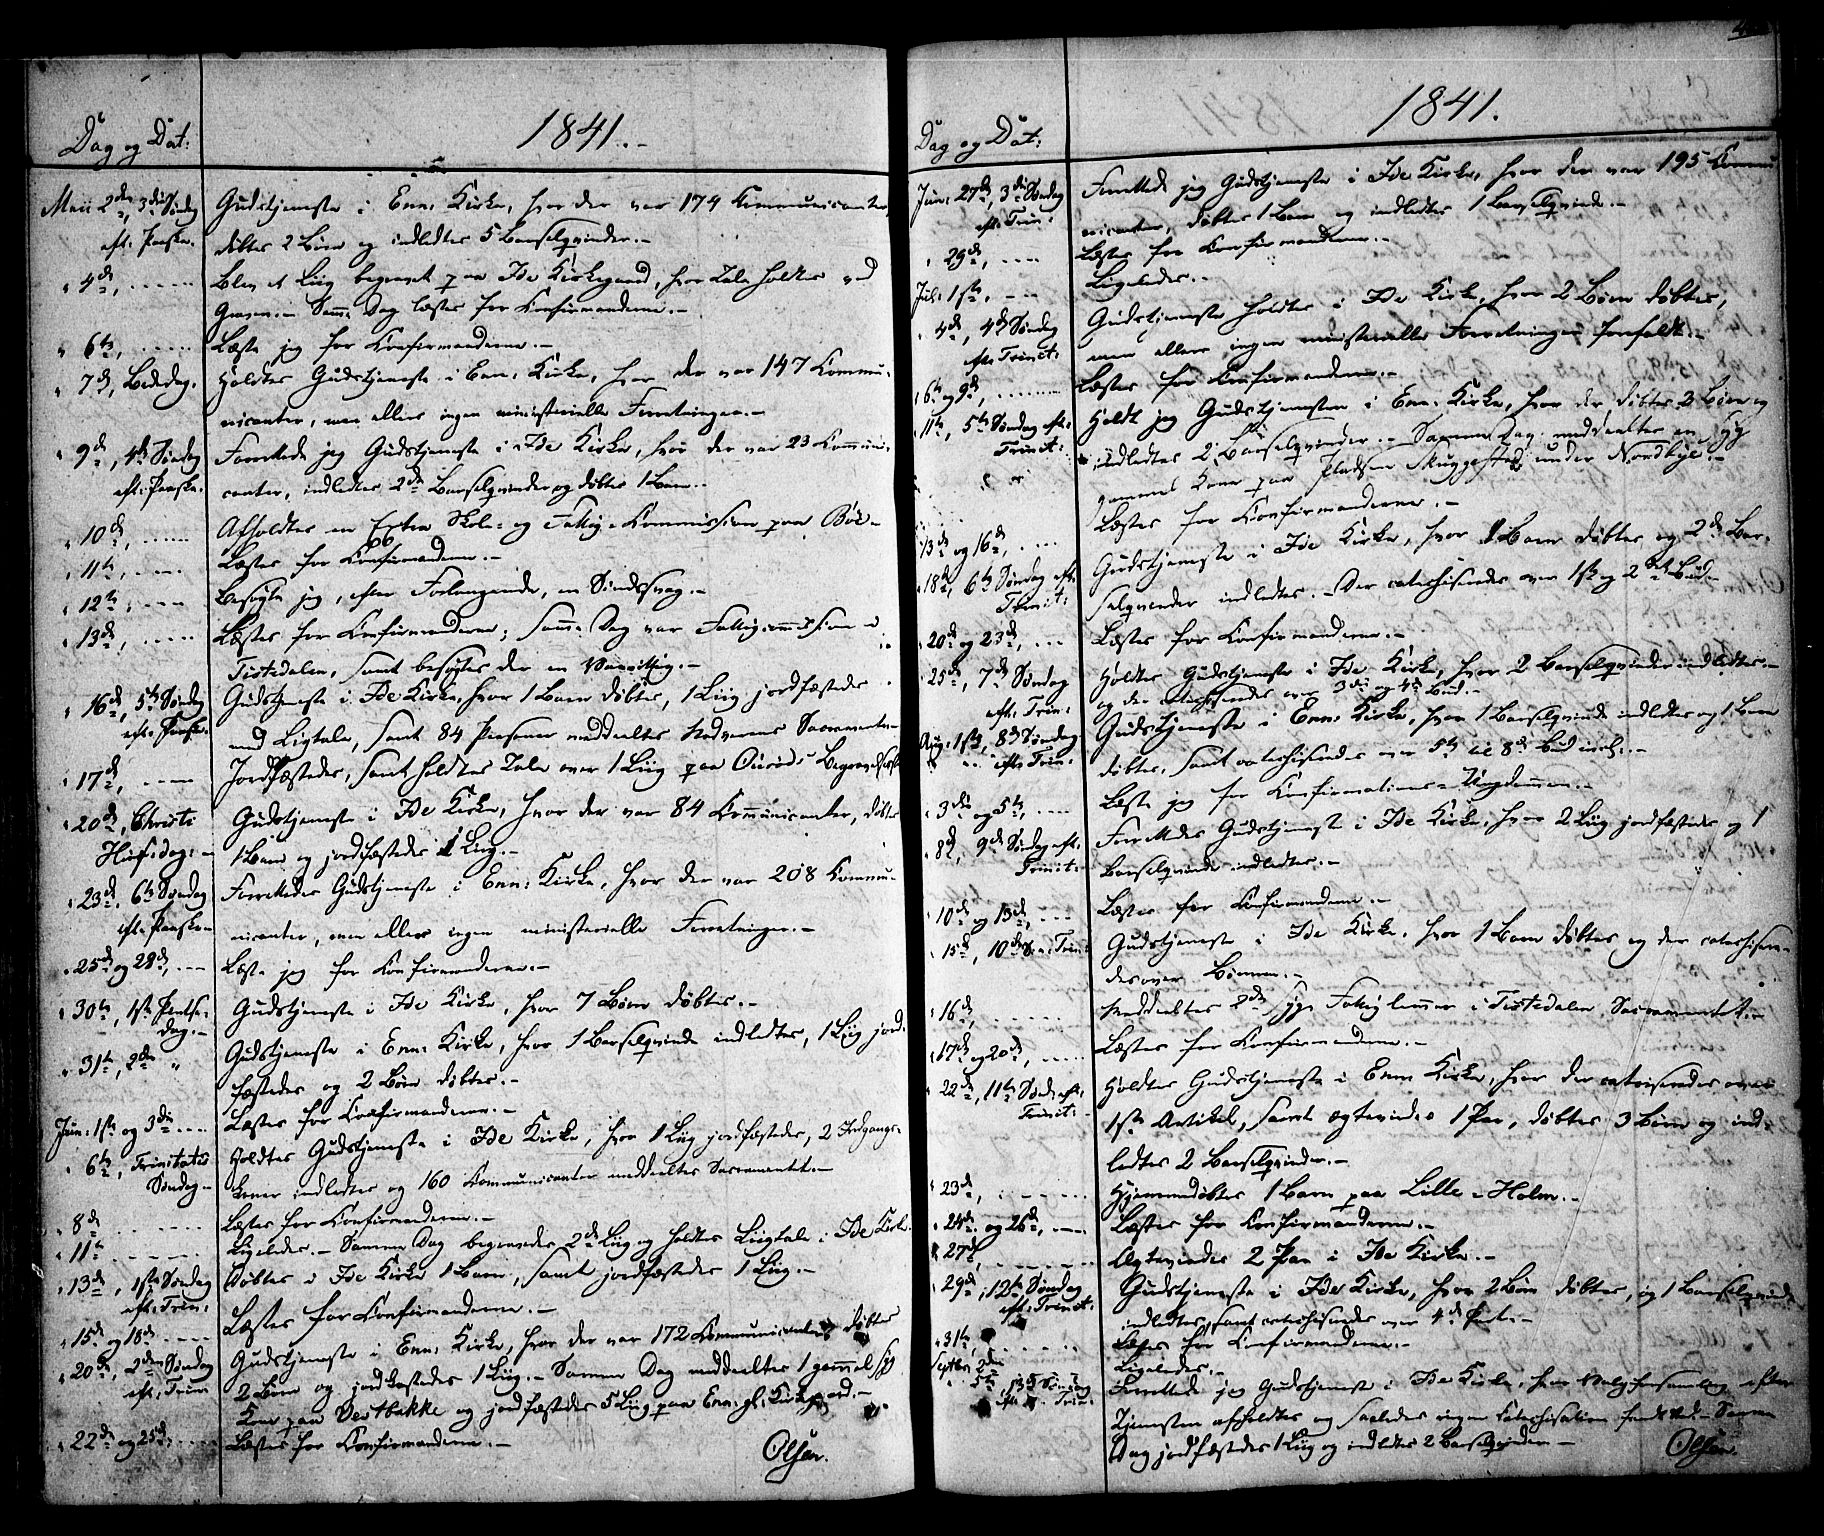 Dag og Dat:
1841.-
Maii 2den, 3die Søndag
Gudstjeneste i Enn: Kirke, hvor der var 174 Kommunicanter,
eft: Paaske.
døbtes 2 Børn og indledtes 5 Barselqvinder.-
" 4de, ......
Blev et Liig begravet paa Ide Kirkegaard, hvor Tale holdtes ved
Graven.- Samme Dag læstes for Konfirmanderne.-
" 6te, ......
Læste jeg for Konfirmanderne.-
" 7de, Bededag.
Holdtes Gudstjeneste i Enn: Kirke, hvor der var 147 Kommu-
nicanter, men ellers ingen ministerielle Forretninger.-
" 9de, 4de Søndag
Forrettede jeg Gudstjeneste i Ide Kirke, hvor der var 23 Kommuni-
eft: Paaske.
canter, indledtes 2de Barselqvinder og døbtes 1 Barn.-
" 10de, ......
Afholdtes en Extra Skole- og Fattig-Kommission paa Böe-
" 11te, ....
Læstes for Konfirmanderne.-
" 12te, ....
Besøgte jeg, efter Forlangende, en Sindssvag.-
" 13de, ....
Læstes for Konfirmanderne; samme Dag var Fattigcommission i
Tistedalen, samt besøgtes der en Vanvittig.-
" 16de, 5te Søndag
Gudstjeneste i Ide Kirke, hvor 1 Barn døbtes, 1 Liig jordfæstedes
eft: Paaske.
med Ligtale, samt 84 Personer meddeeltes Nadverens Sacramente.-
" 17de, ....
Jordfæstedes, samt holdtes Tale over 1 Liig paa Begravelses
" 20de, Christi
Gudstjeneste i Ide Kirke, hvor der var 84 Kommunicanter, døbtes
Himfdag:-
1 Barn og jordfæstedes 1 Liig.-
" 23de, 6te Søndag
Forrettedes Gudstjeneste i Enn: Kirke, hvor der var 208 Kommu-
eft: Paaske-
nicanter, men ellers ingen ministerielle Forretninger.-
" 25de og 28de, ...
Læste jeg for Konfirmanderne.-
" 30te, 1ste Pintse-
Gudstjeneste i Ide Kirke, hvor 7 Børn døbtes.-
dag.-
" 31te, 2de "
Gudstjeneste i Enn: Kirke, hvor 1 Barselqvinde indledtes, 1 Liig jord-
fæstedes og 2 Børn døbtes.-
Jun: 1ste og 3die ....
Læstes for Konfirmanderne.-
" 6te, Trinitatis
Holdtes Gudstjeneste i Ide Kirke, hvor 1 Liig jordfæstedes, 2 Indgangs-
Søndag-
koner indledtes og 160 Kommunicanter meddeeltes Sacramentet.-
" 8de ....
Læstes for Konfirmanderne.-
" 11te ....
Ligeledes.- Samme Dag begravedes 2de Liig og holdtes Liigtale i Ide Kirke.
" 13de, 1ste Søndag
Døbtes i Ide Kirke 1 Barn, samt jordfæstedes 1 Liig.-
eft: Trin:
" 15de og 18de ....
Læstes for Konfirmanderne.-
" 20de, 2den Søndag
Gudstjeneste i Enn: Kirke, hvor der var 172 Kommunicanter, døbtes
eft: Trin:
2 Børn og jordfæstedes 1 Liig.- Samme Dag meddeeltes 1 gammel syg
Kone paa Vestbakke og jordfæstedes 5 Liig paa Enn: gl: Kirkegaard.-
" 22de og 25de, ....
Læstes for Konfirmanderne.-
Olsen.
Dag og Dat:
1841.
Jun: 27de, 3die Søndag
Forrettede jeg Gudstjeneste i Ide Kirke, hvor der var 195 Kommu
eft: Trin:
nicanter, døbtes 1 Barn og indledtes 1 Barselqvinde.-
" 29de, ....
Læstes for Konfirmanderne.-
Jul: 1ste, ....
Ligeledes.-
" 4de, 4de Søndag
Gudstjeneste holdtes i Ide Kirke, hvor 2 Børn døbtes,
eft: Trinit:
men ellers ingen ministerielle Forretninger forefaldt.-
" 6te og 9de, ....
Læstes for Konfirmanderne.-
" 11te, 5te Søndag eft:
Holdt jeg Gudstjenesten i Enn: Kirke, hvor der døbtes 3 Børn og
Trinit:
indledtes 2 Barselqvinder.- Samme Dag meddeeltes en syg
gammel Kone paa Pladsen Skuggestad under Nordbye.-
" 13de og 16de, ....
Læstes for Konfirmanderne.-
" 18de, 6te Søndag eft:
Gudstjeneste i Ide Kirke, hvor 1 Barn døbtes og 2de Bar-
Trinit:
selqvinder indledtes.- Der catechiseredes over 1ste og 2det Bud.-
" 20de og 23de, ....
Læstes for Konfirmanderne.-
" 25de, 7de Søndag
Holdtes Gudstjeneste i Ide Kirke, hvor 2 Barselqvinder indledtes-
eft: Trin:
og der catechiseredes over 3die og 4de Bud.-
Aug: 1ste, 8de Søndag
Gudstjeneste i Enn: Kirke, hvor 1 Barselqvinde indledtes og 1 Barn
eft: Trin:
døbtes, samt catechiseredes over 5te til 8de Bud incl:.-
" 3die og 5te, ....
Læste jeg for Konfirmations-Ungdommen.-
" 8de, 9de Søndag eft:
Forrettedes Gudstjeneste i Ide Kirke, hvor 2 Liig jordfæstedes og 1
Trinit:
Barselqvinde indledtes.-
" 10de og 13de, ....
Læstes for Konfirmanderne.-
" 15de, 10de S. e. Trinit:
Gudstjeneste i Ide Kirke, hvor 1 Barn døbtes og der catechisere-
des over Bønnen.-
" 16de, ....
Meddeeltes 2de syge Fattiglemmer i Tistedalen Sacramentet.-
" 17de og 20de, ....
Læstes for Konfirmanderne.-
" 22de, 11te Sønd: eft:
Holdtes Gudstjeneste i Enn: Kirke, hvor der catechiseredes over
Trinit:
1ste Artikel, samt ægteviedes 1 Par, døbtes 3 Børn og ind-
ledtes 2 Barselqvinder.-
" 23de, ....
Hjemmedøbtes 1 Barn paa Lille-Holm.-
" 24de og 26de, ....
Læstes for Konfirmanderne.-
" 27de, ....
Ægteviedes 2 Par i Ide Kirke.-
" 29de, 12te Søndag
Gudstjeneste i Ide Kirke, hvor 2 Børn døbtes, og 1 Barselqvinde
eft: Trinit:
indledtes, samt catechiseredes over 4de Part.-
" 31te, ....
Læstes for Konfirmanderne.-
Septbr: 2den
Ligeledes.-
" 5te, 13de Søndag
Forrettede jeg Gudstjeneste i Ide Kirke, hvor Valgforsamling efter
eft: Trin:
Tjenesten afholdtes og saaledes ingen Katechisation fandt Sted.- Samme
Dag jordfæstedes 1 Liig og indledtes 2 Barselqvinder.-
Olsen.